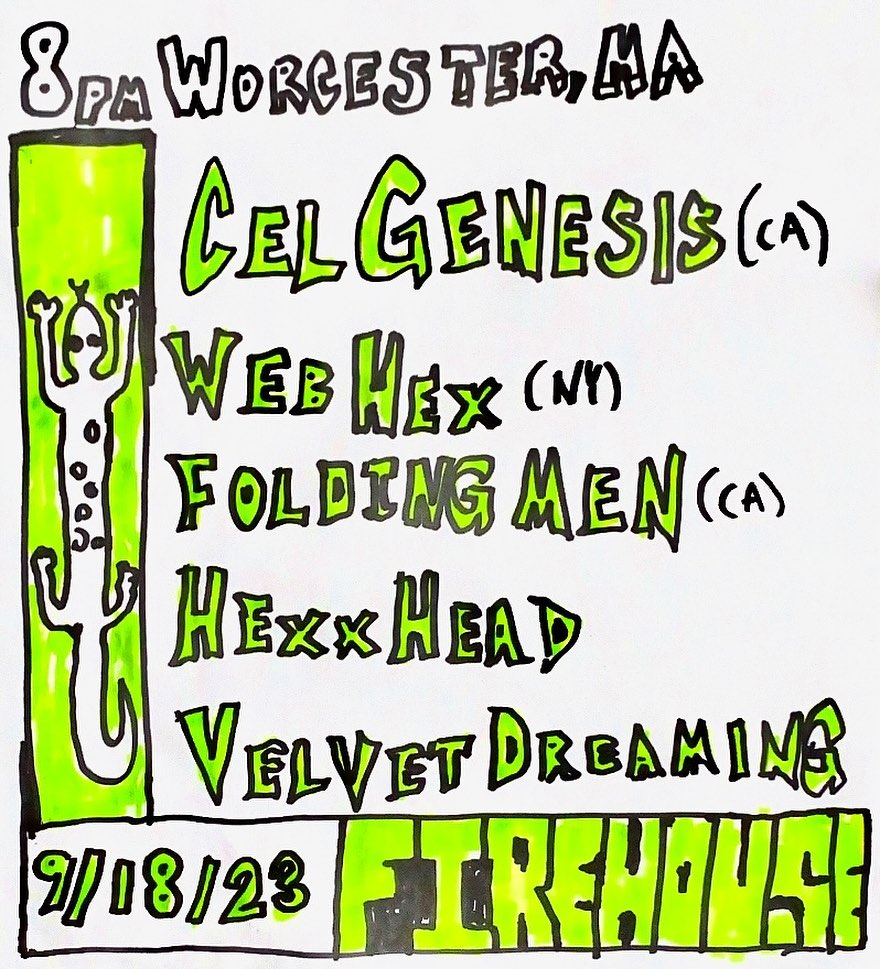 8PM WORCESTER, MA
CEL GENESIS (CA)
WEB HEX (NY)
FOLDING MEN (CA)
HEXX HEAD
VELVET DREAMING
9/18/23 FIREHOUSE